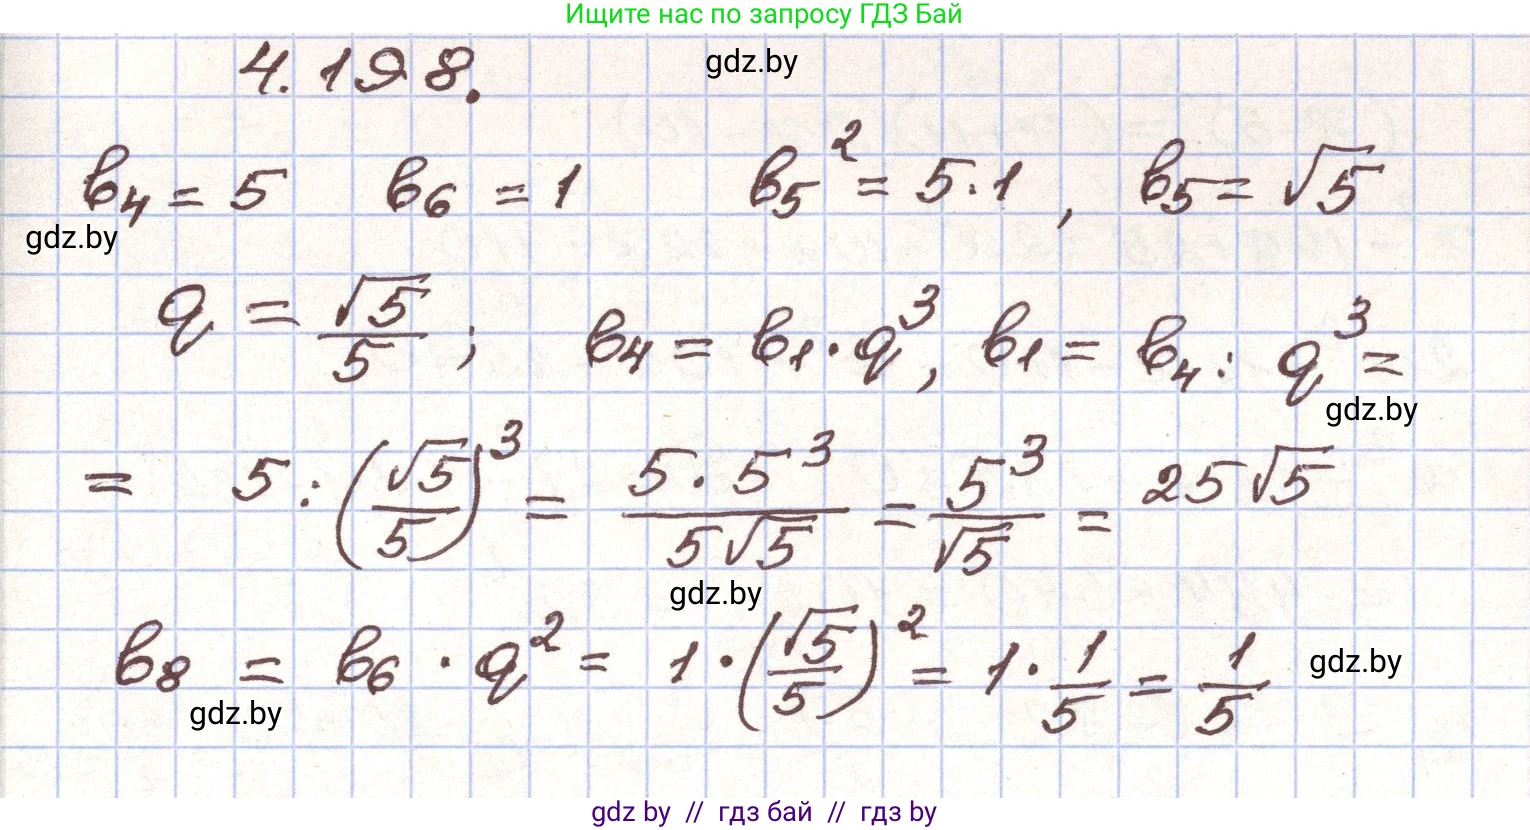 Ищите нас по запросу ГДЗ Бай
4.198.
gdz.by
b₄ = 5 b₆ = 1 b₅² = 5·1, b₅ = √5
gdz.by
q = √5/5; b₄ = b₁·q³, b₁ = b₄ : q³ =
gdz.by
= 5 : (√5/5)³ = 5·5³/5√5 = 5³/√5 = 25√5
gdz.by
b₈ = b₆ · q² = 1·(√5/5)² = 1·1/5 = 1/5
gdz.by
gdz.by
gdz by // гдз бай // гдз by